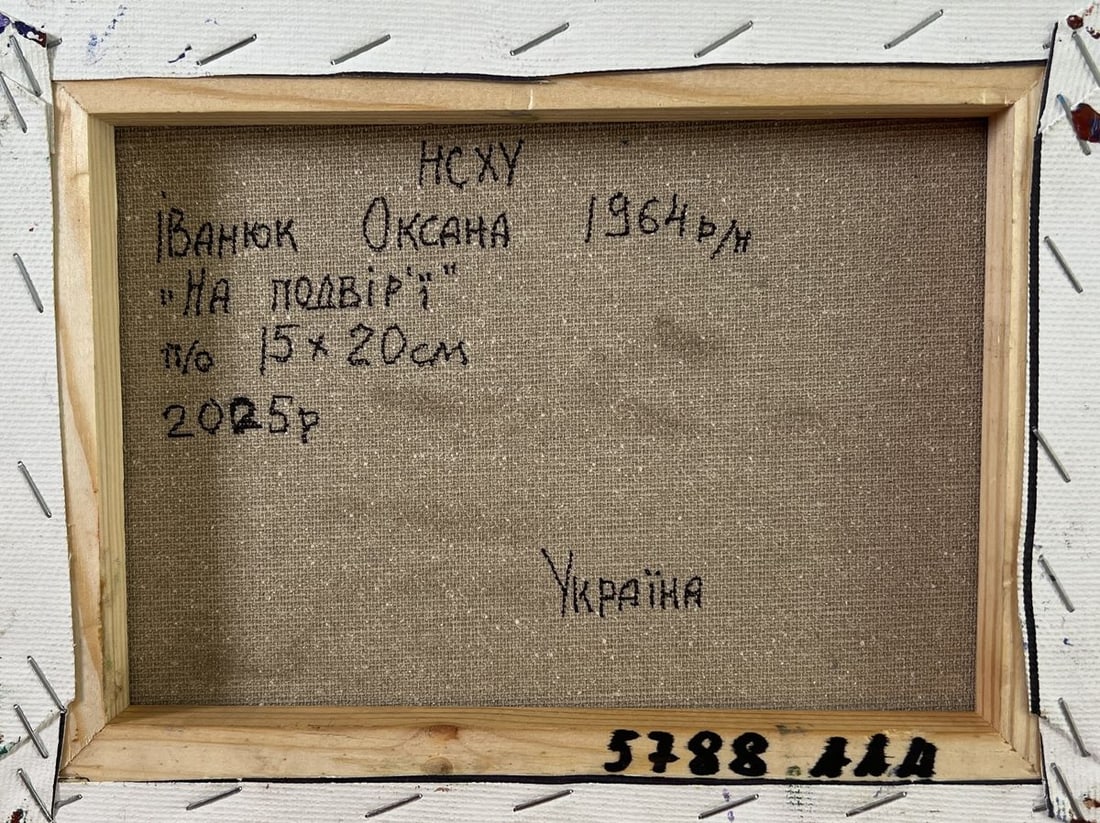 НСХУ
Іванюк Оксана 1964 р/н
"На подвір'ї"
п/о 15 x 20 см
2025р
Україна
5788